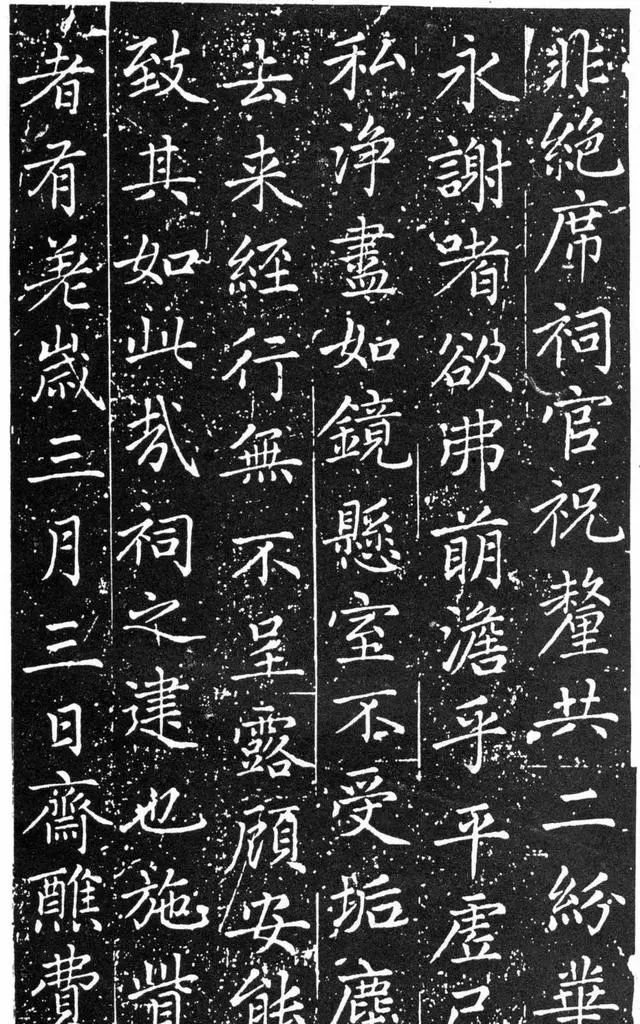 非絕席祠官祝釐共二紛華
永謝嗜欲弗萌澹乎平虛己
私浄盡如鏡懸室不受垢塵
去来經行無不呈露顧安能
致其如此㢤祠之建也施貲
者有差歲三月三日齋醮費